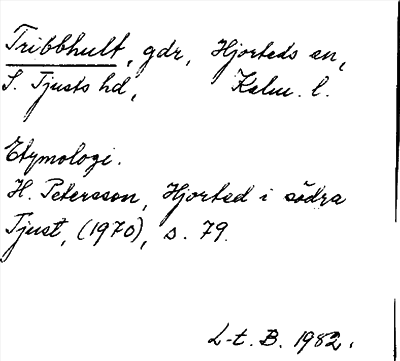 Tribbhult, gdr, Hjorteds sn,
S. Tjusts hd, Kalm. l.
Etymologi.
H. Petersson, Hjorted i södra
Tjust, (1970), s. 79.
L-t. B. 1982.